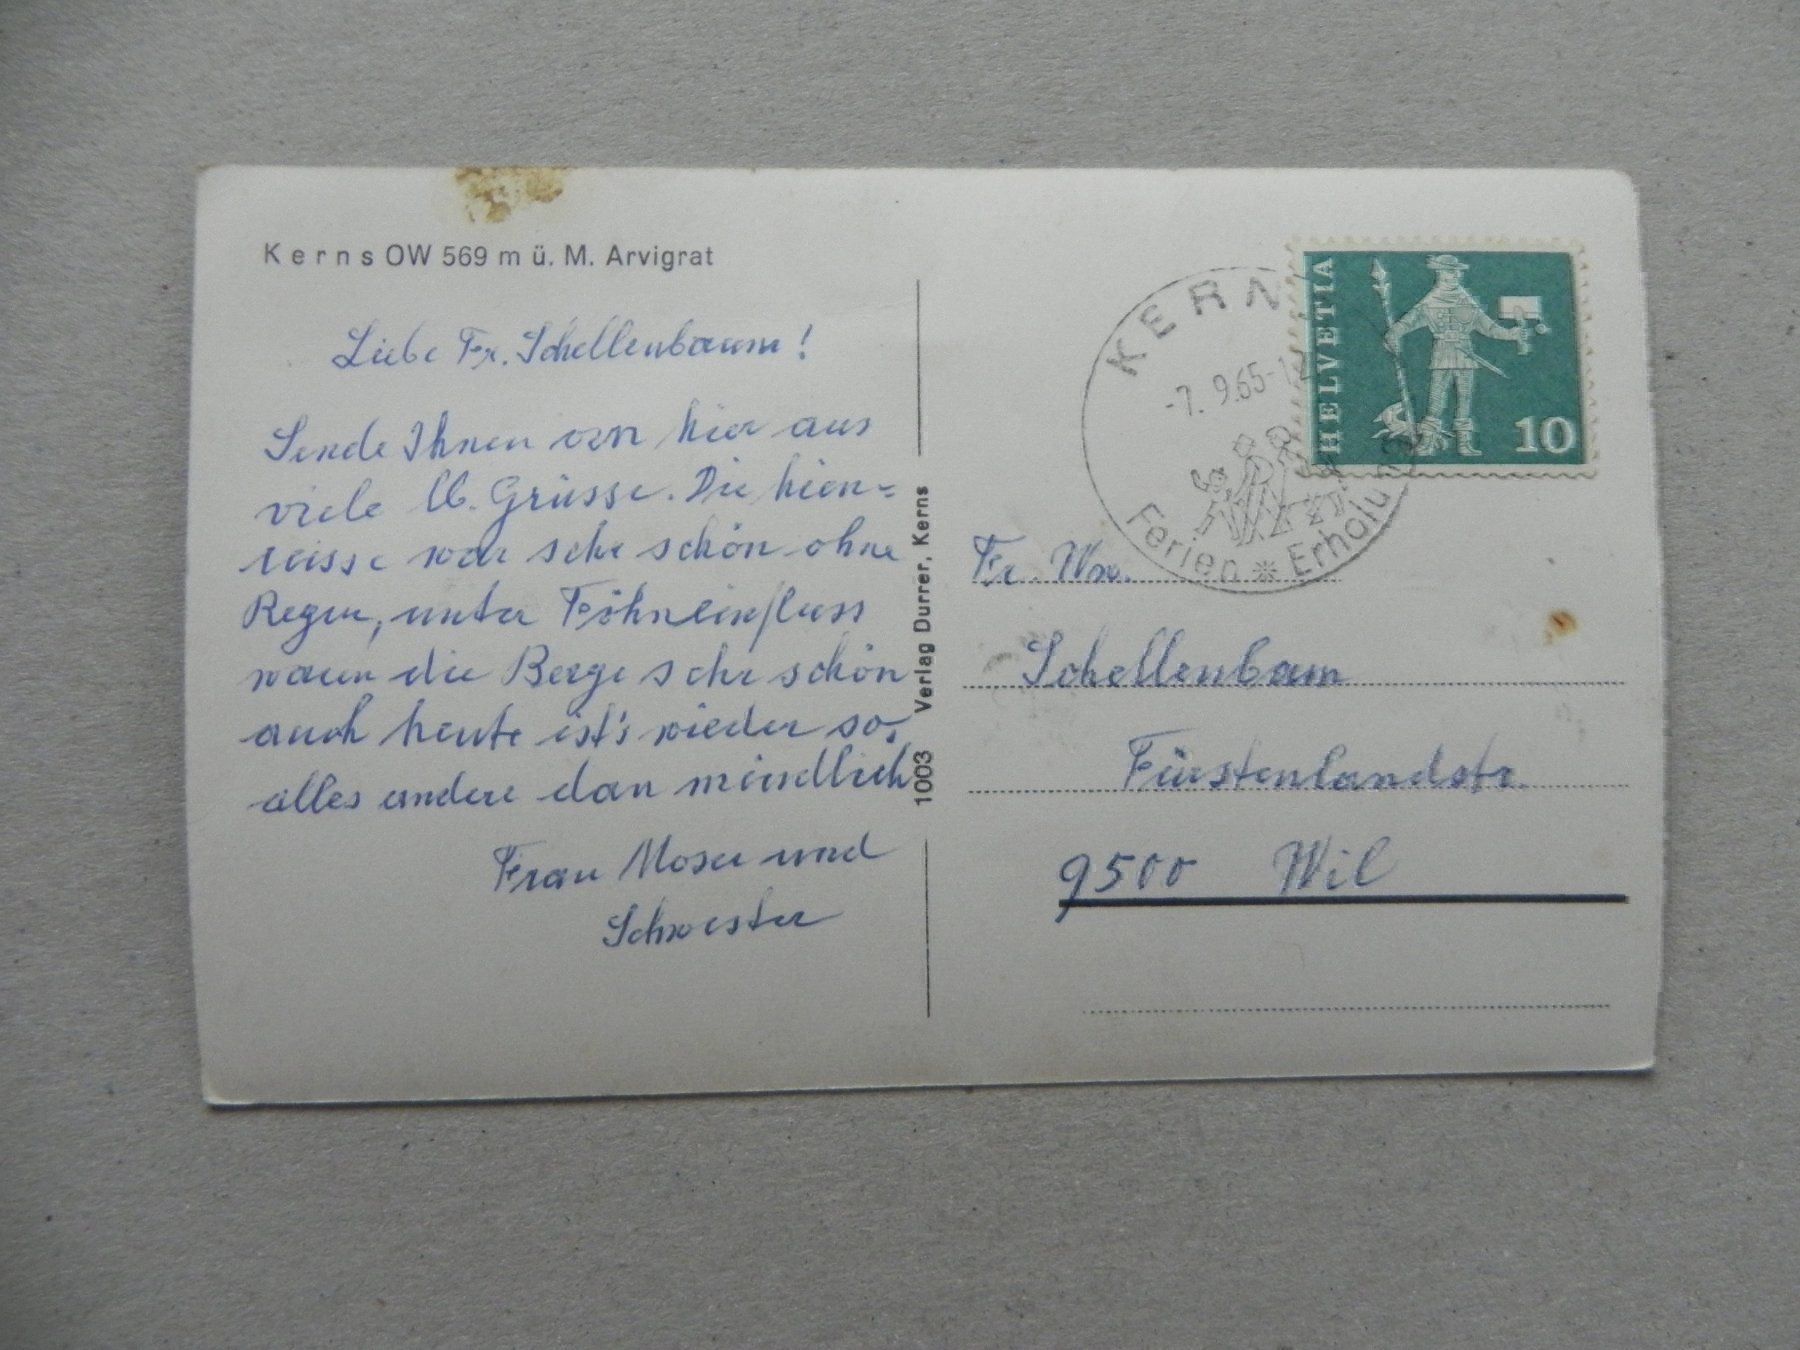 Kerns OW 569 m ü. M. Arvigrat
Liebe Fr. Schellenbaum!
Sende Ihnen von hier aus
viele lb. Grüsse. Die hien=
reisse war sehr schön ohne
Regen, unter Föhneinfluss
waren die Berge sehr schön
auch heute ist's wieder so,
alles andere dan mündlich
Frau Moser und
Schwester
1003 Verlag Durrer, Kerns
KERN
-7. 9.65-12
Ferien * Erholung
HELVETIA
10
Fr. Ww.
Schellenbaum
Fürstenlandstr.
9500 Wil